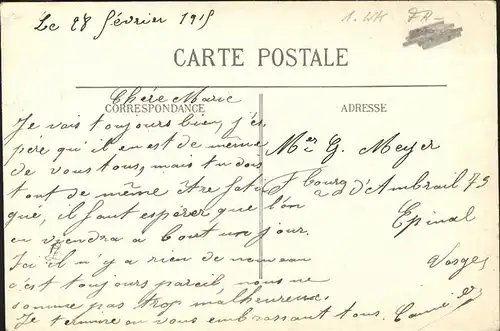 Le 28 février 1915
1. WK FR-
CARTE POSTALE
CORRESPONDANCE
ADRESSE
Chère Marie
Je vais toujours bien, j'es
père qu'il en est de même
de vous tous, mais tu dois
tout de même être fati
gué, il faut espérer que l'on
en viendra a bout un jour.
Ici il n'y a rien de nouveau
c'est toujours pareil, nous ne
somme pas trop malheureux.
Je termine en vous embrassant tous.
Mer G. Meyer
Fbourg d'Ambrail 73
Epinal
Vosges